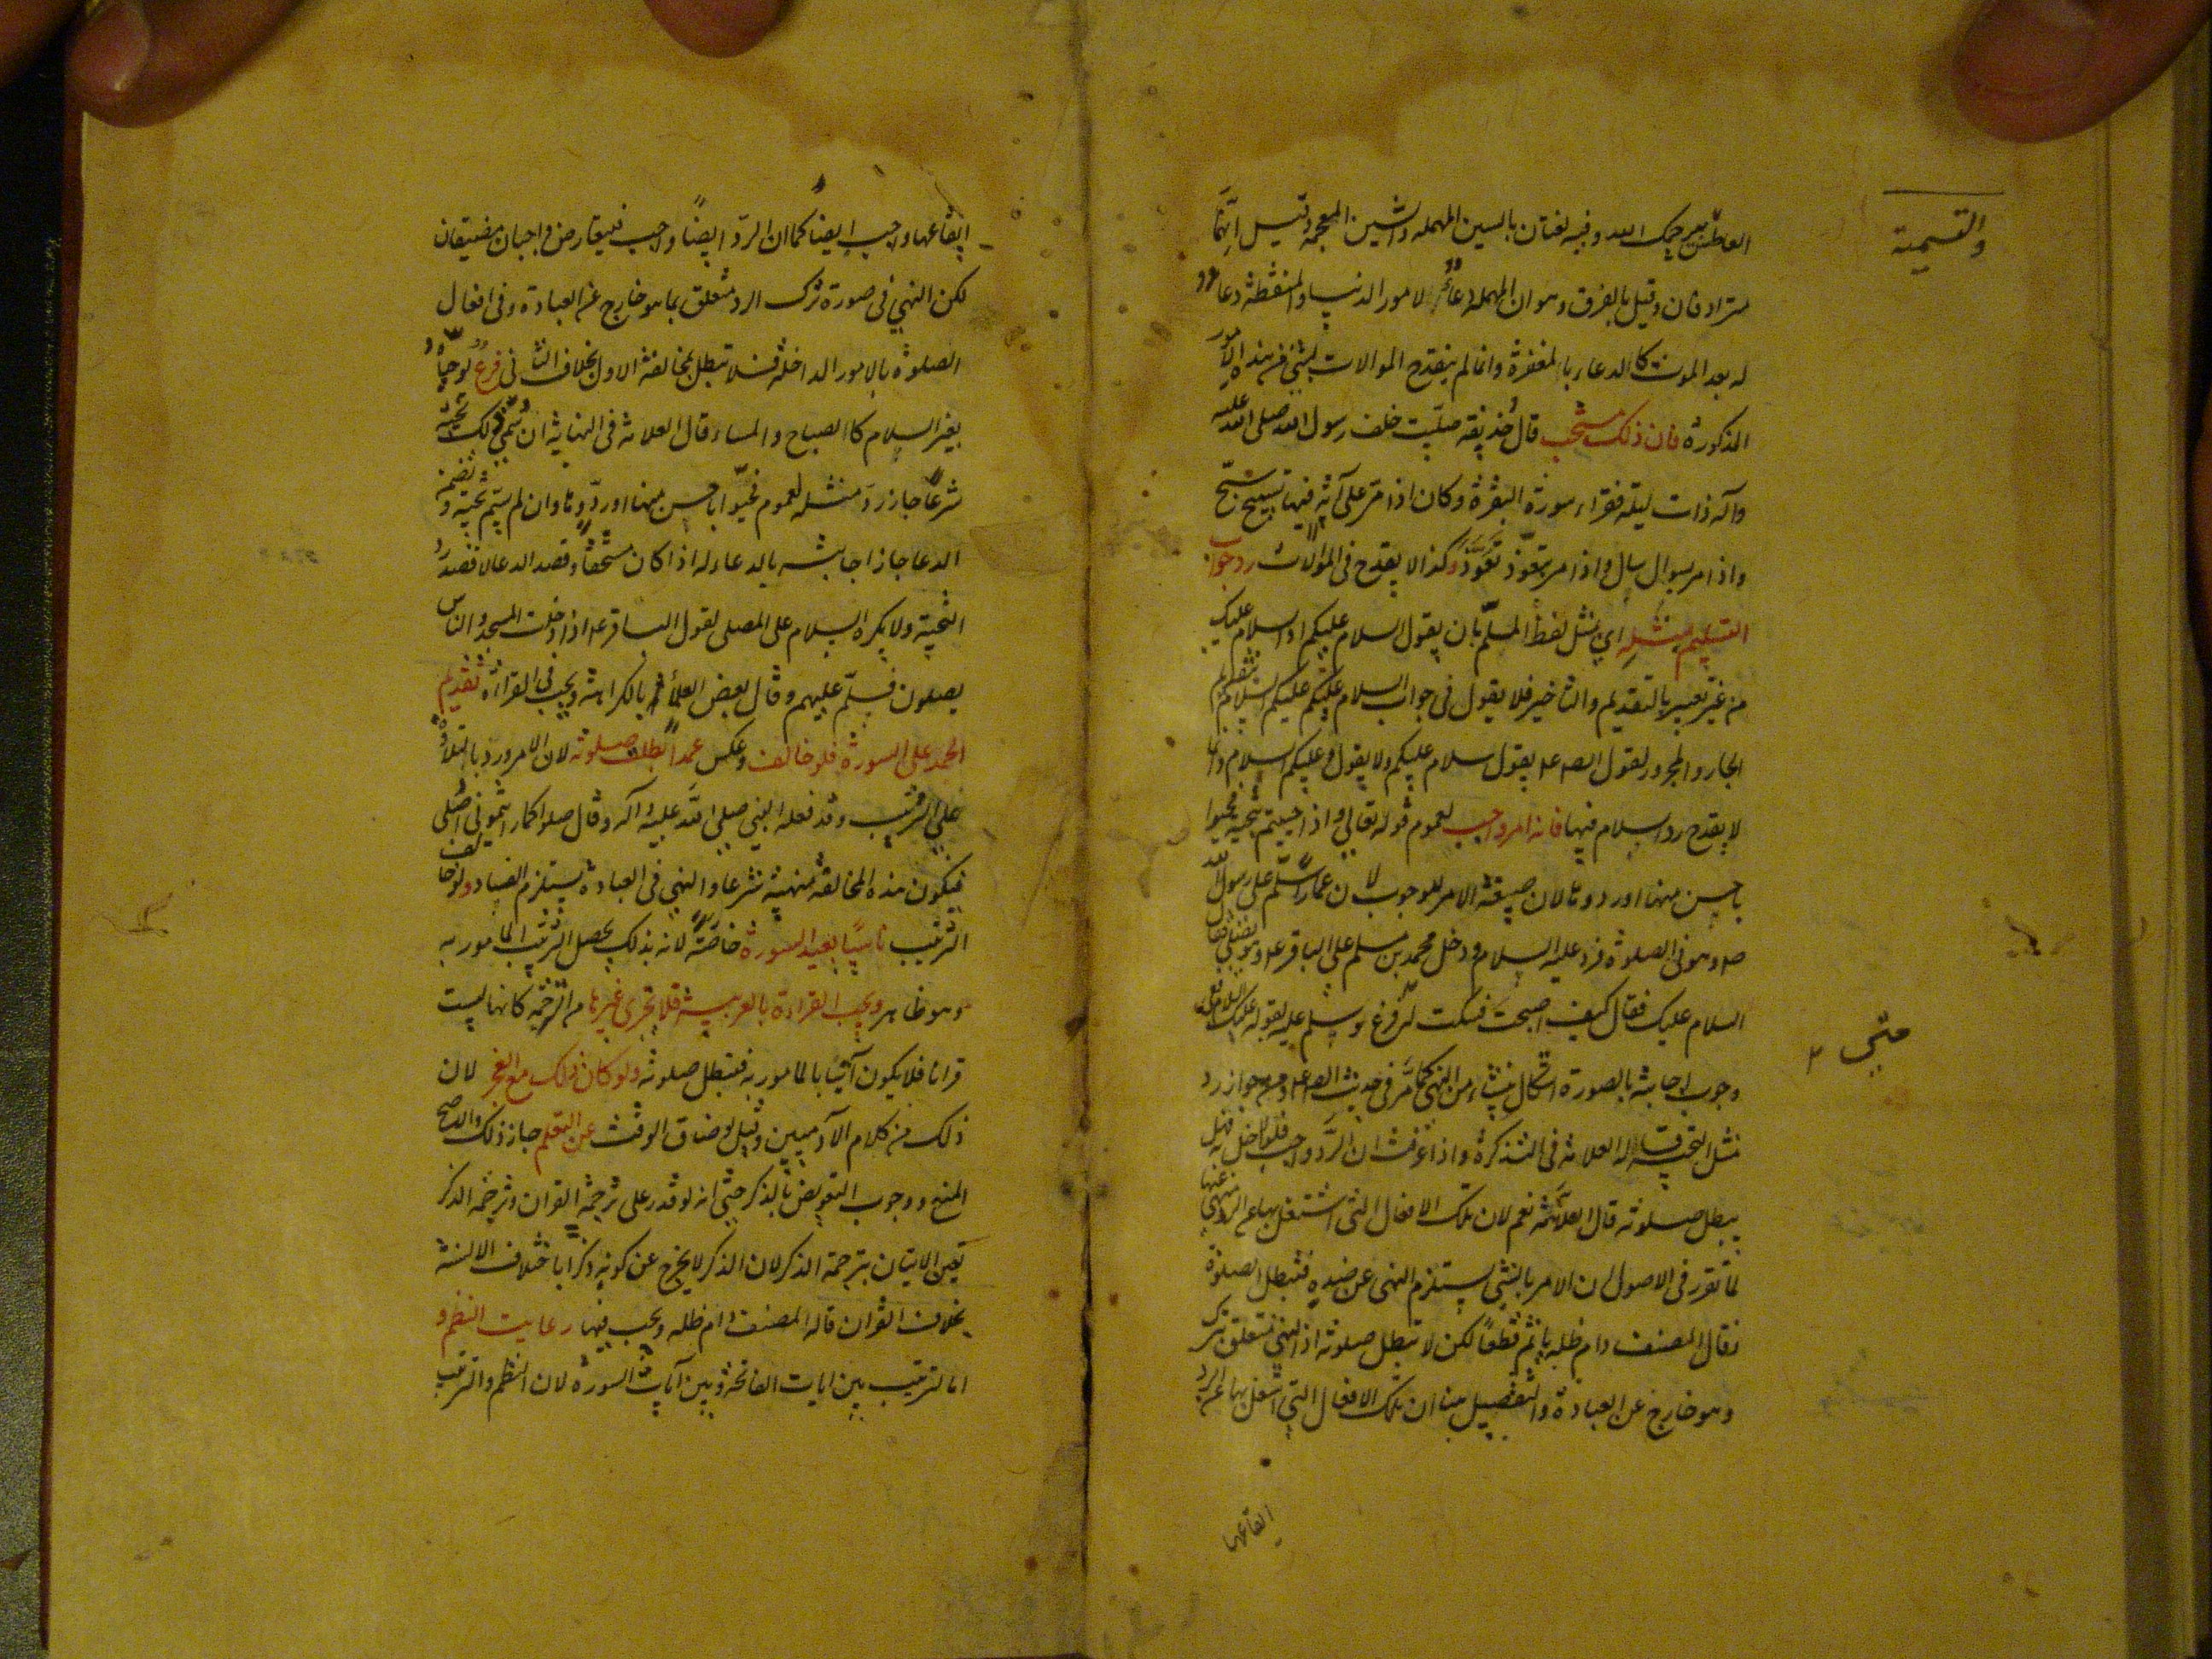 والتسمية
العاطس يرحمك الله وفيه لغتان بالسين المهمله والشين المعجمة وقيل انهما
مترادفان وقيل بالفرق وهو ان المهمله دعاء لامور الدنيا والمنقطة دعاء
له بعد الموت كالدعاء بالمغفرة وانما لم ينقدح الموالات بشئ من هذه الامور
المذكورة فان ذلك مستحب قال حذيفة صليت خلف رسول الله صلى الله عليه
وآله ذات ليلة فقراء سورة البقرة وكان اذا مر على آية فيها تسبيح سبح
واذا مر بسوال سال واذا مر بتعوذ تعوذ وكذا لا يقدح في الموالات رد جواب
التسليم بمثله اي بمثل لفظ المسلم بان يقول سلام عليكم او السلام عليك
من غير تغيير بالتقديم والتاخير فلا يقول في جواب السلام عليكم عليكم السلام بتقديم
الجار والمجرور لقول الصـ عـ يقول سلام عليكم ولا يقول وعليكم السلام وانما
لا يقدح رد السلام فيها فانه امر واجب لعموم قوله تعالى واذا حييتم بتحية فحيوا
باحسن منها او ردوها لان صيغة الامر للوجوب لان عمارا سلم على رسول الله
صـ وهو في الصلوة فرد عليه السلام ودخل محمد بن مسلم على الباقر عـ وهو يصلي فقال
السلام عليك فقال كيف اصبحت فسكت
متي ٢
وجوب اجابته بالصورة اشكال ينشاء من النهي كما مر في حديث الصـ عـ ومن جواز رد
مثل التحية قاله العلامة في التذكرة واذا عرفت ان الرد واجب فلو اخل به فهل
يبطل صلوته قال العلامة نعم لان تلك الافعال التي اشتغل بها عن الرد منهي عنها
لما تقرر في الاصول ان الامر بالشئ يستلزم النهي عن ضده فتبطل الصلوة
وقال المصنف دام ظله ياثم قطعا لكن لا تبطل صلوته اذ النهي متعلق بترك
وهو خارج عن العبادة والتفصيل هنا ان تلك الافعال التي اشتغل بها عن الرد
ايقاعها
ايقاعها واجب ايضا كما ان الرد ايضا واجب فيتعارض واجبان مضيقان
لكن النهي في صورة ترك الرد متعلق بما هو خارج عن العبادة وفي افعال
الصلوة بالامور الداخلة فلا تبطل بمخالفة الاول بخلاف الثاني فرع لو حياه
بغير السلام كالصباح والمساء قال العلامة في النهاية ان سمي ذلك تحية
شرعا جاز رد مثله لعموم فحيوا باحسن منها او ردوها وان لم يسم تحية وتضمن
الدعا جاز اجابته بالدعاء له اذا كان مستحقا وقصد الدعا لا قصد رد
التحية ولا يكره السلام على المصلي لقول الباقر عـ اذا دخلت المسجد والناس
يصلون فسلم عليهم وقال بعض العلماء بالكراهة ويجب في القراءة تقديم
الحمد على السورة فلو خالف وعكس عمدا بطلت صلوته لان الامر ورد بالتلاوة
على الترتيب وقد فعله النبي صلى الله عليه وآله وقال صلوا كما رايتموني اصلي
فيكون هذه المخالفة منهية شرعا والنهي في العبادة يستلزم الفساد ولو خالف
الترتيب ناسيا يعيد السورة خاصة لانه بذلك يحصل الترتيب المامور به
وهو ظاهر ويجب القراءة بالعربية فلا تجزي غيرها من الترجمة كانها ليست
قرانا فلا يكون آتيا بالمامور به فتبطل صلوته ولو كان ذلك مع العجز لان
ذلك من كلام الآدميين وقيل لو ضاق الوقت عن التعلم جاز ذلك والاصح
المنع ووجوب التعويض بالذكر حتى انه لو قدر على ترجمة القران وترجمة الذكر
تعين الاتيان بترجمة الذكر لان الذكر لا يخرج عن كونه ذكرا باختلاف الالسنة
بخلاف القران قاله المصنف دام ظله ويجب فيها رعاية النظم و
الترتيب بين ايات الفاتحة وبين آيات السورة لان النظم والترتيب